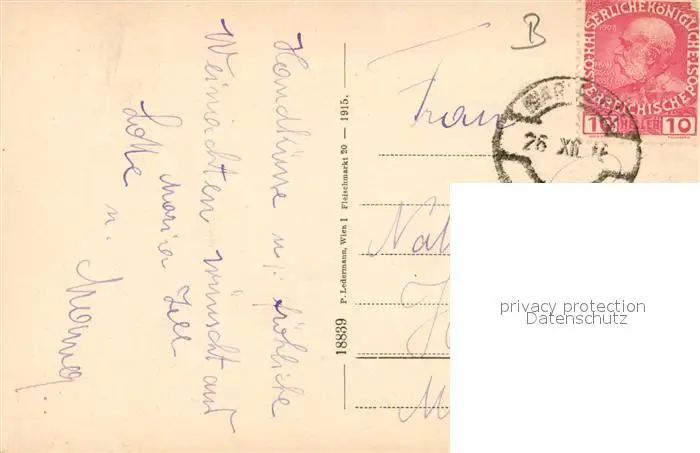 Handküsse u. fröhliche
Weinachten wünscht aus
Maria Zell
Lotte
u. Mama
18839
P. Ledermann, Wien I Fleischmarkt 20 — 1915.
B
Frau
KAISERLICHE KÖNIGLICHE
ÖSTERREICHISCHE POST
1908
HELLER
10
26 XII
privacy protection
Datenschutz